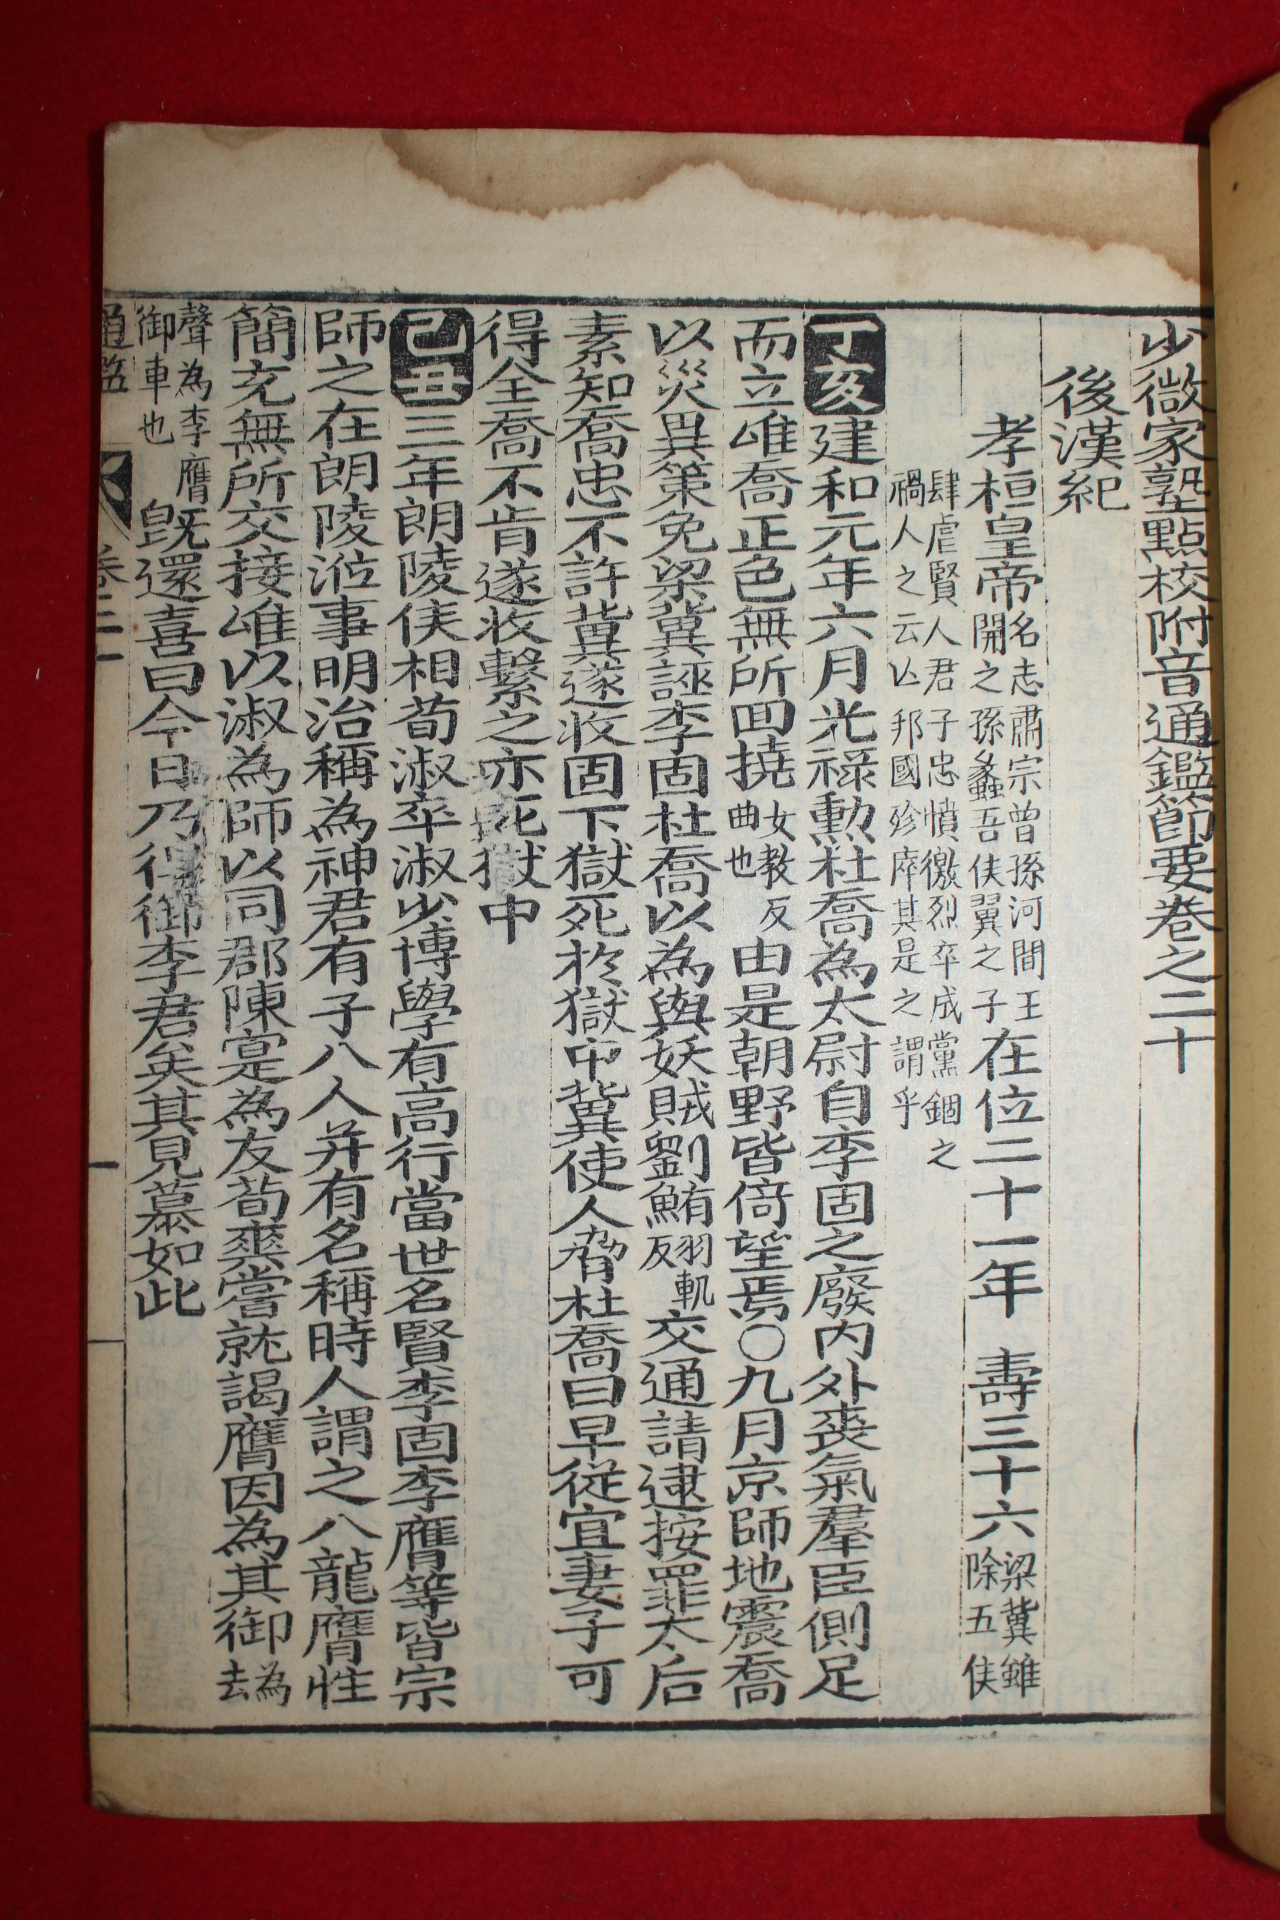 少微家塾點校附音通鑑節要卷之二十
後漢紀
孝桓皇帝名志肅宗曾孫河間王開之孫蠡吾侯翼之子在位二十一年 壽三十六梁冀雖除五侯
肆虐賢人君子忠憤激烈卒成黨錮之禍人之云亡邦國殄瘁其是之謂乎
丁亥建和元年六月光祿勲杜喬為太尉自李固之廢内外喪氣羣臣側足
而立唯喬正色無所回撓女教反曲也由是朝野皆倚望焉○九月京師地震喬
以災異策免梁冀誣李固杜喬以為與妖賊劉鮪羽軌反交通請逮按罪太后
素知喬忠不許冀遂收固下獄死於獄中冀使人脅杜喬曰早從宜妻子可
得全喬不肯遂收繫之亦死獄中
己丑三年朗陵侯相荀淑卒淑少博學有高行當世名賢李固李膺等皆宗
師之在朗陵涖事明治稱為神君有子八人并有名稱時人謂之八龍膺性
簡亢無所交接唯以淑為師以同郡陳寔為友荀爽嘗就謁膺因為其御為去
聲為李膺御車也既還喜曰今日乃得御李君矣其見慕如此
通鑑 卷二十 一